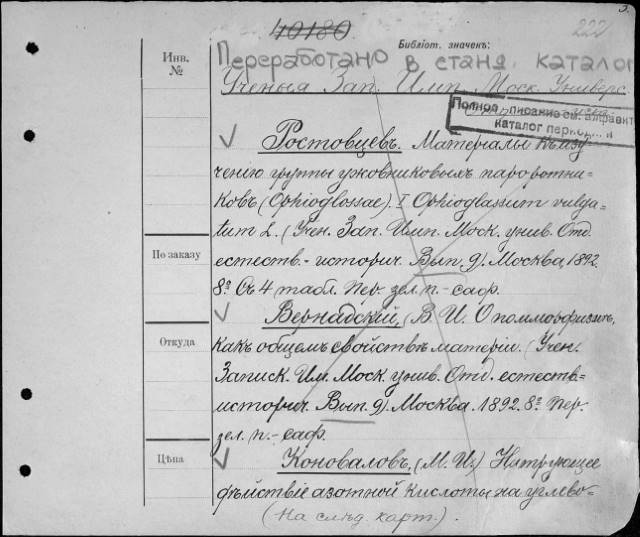 5.
40180
222
Библіот. значекъ:
Инв. №
Переработано в станд. каталог
Ученыя Зап. Имп. Моск. Универс.
Полное писание см. алфавит
каталог период
Ростовцевъ. Матерьалы къ изу-
ченію группы ужовниковыхъ папоротни-
ковъ (Ophioglosseae). I Ophioglossum vulga-
tum L. (Учен. Зап. Имп. Моск. унив. Отд.
По заказу
естеств.-историч. Вып. 9). Москва, 1892.
8º Съ 4 табл. Пер. зел. п.-саф.
Вернадскій, (В. И. О полиморфизмѣ,
Откуда
какъ общемъ свойствѣ матеріи. (Учен.
Записк. Им. Моск. унив. Отд. естеств.-
историч. Вып. 9). Москва. 1892. 8º Пер.
зел. п.-сафр.
Цѣна
Коноваловъ, (М. И.) Нитрующее
дѣйствіе азотной кислоты на углево-
(на слѣд. карт.).